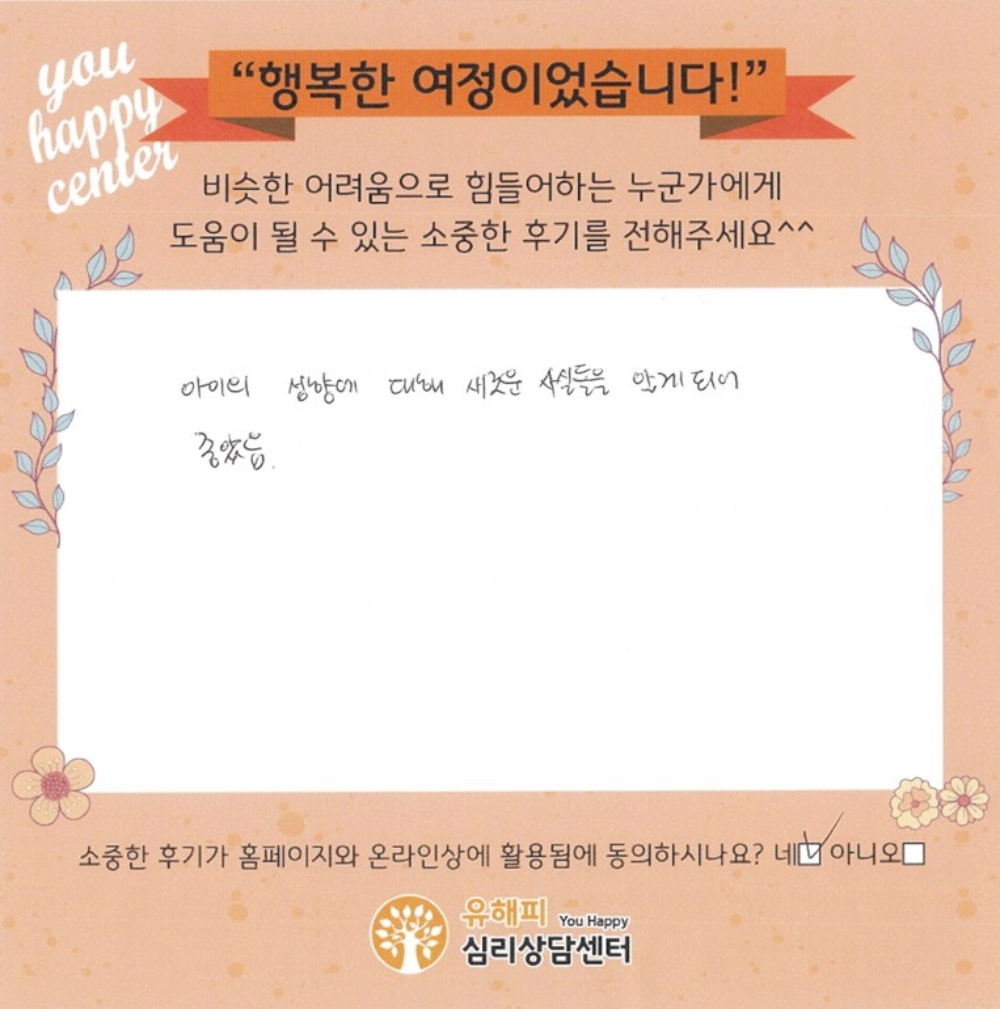 you
happy
center
“행복한 여정이었습니다!”
비슷한 어려움으로 힘들어하는 누군가에게
도움이 될 수 있는 소중한 후기를 전해주세요^^
아이의 성향에 대해 새로운 사실들을 알게 되어
좋았음.
소중한 후기가 홈페이지와 온라인상에 활용됨에 동의하시나요? 네☑ 아니오☐
유해피 You Happy
심리상담센터